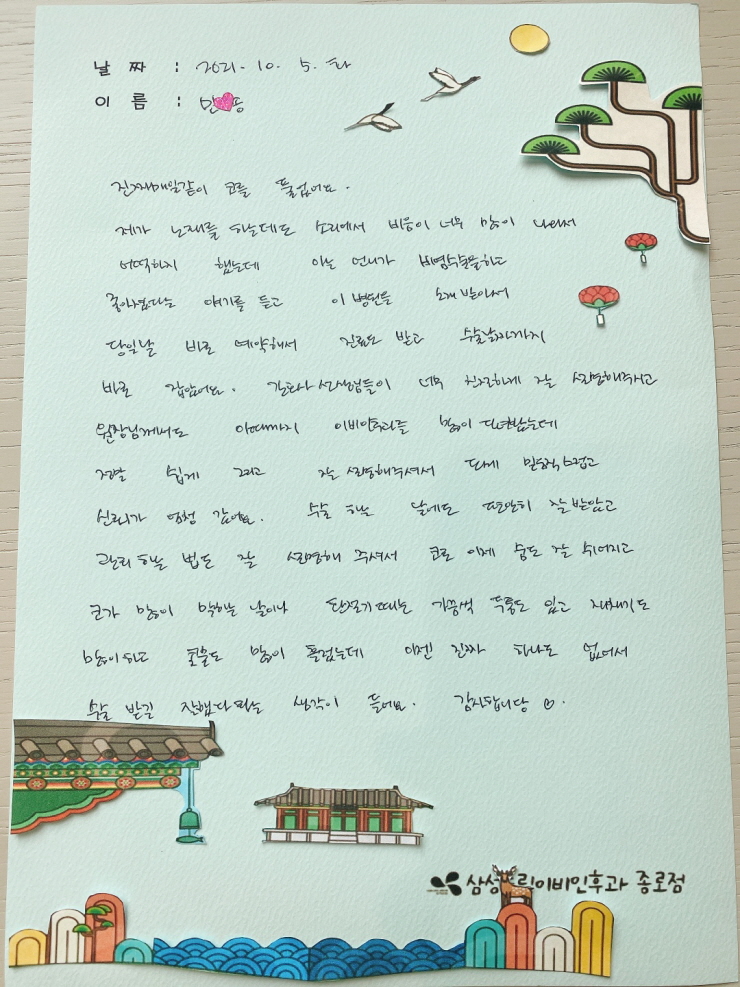 날 짜 : 2021. 10. 5. 화
이 름 : 민
진짜매일같이 코를 풀었어요.
제가 노래를 하는데도 소리에서 비음이 너무 많이 나와서
어떡하지 했는데 아는 언니가 비염수술을하고
좋아졌다는 얘기를 듣고 이 병원을 소개 받아서
당일날 바로 예약해서 진료도 받고 수술날짜까지
바로 잡았어요. 간호사 선생님들이 너무 친절하게 잘 설명해주시고
원장님께서도 여태까지 이비인후과를 많이 다녀봤는데
정말 쉽게 그리고 잘 설명해주셔서 되게 믿음직스럽고
신뢰가 엄청 갔어요. 수술 하는 날에도 편안히 잘받았고
관리 하는 법도 잘 설명해 주셔서 코로 이제 숨도 잘 쉬어지고
코가 많이 막히는 날이나 환절기 때는 가끔씩 두통도 있고 재채기도
많이하고 콧물도 많이 흘렀는데 이젠 진짜 하나도 없어서
수술 받길 잘했다라는 생각이 들어요. 감사합니당
삼성 린이비인후과 종로점